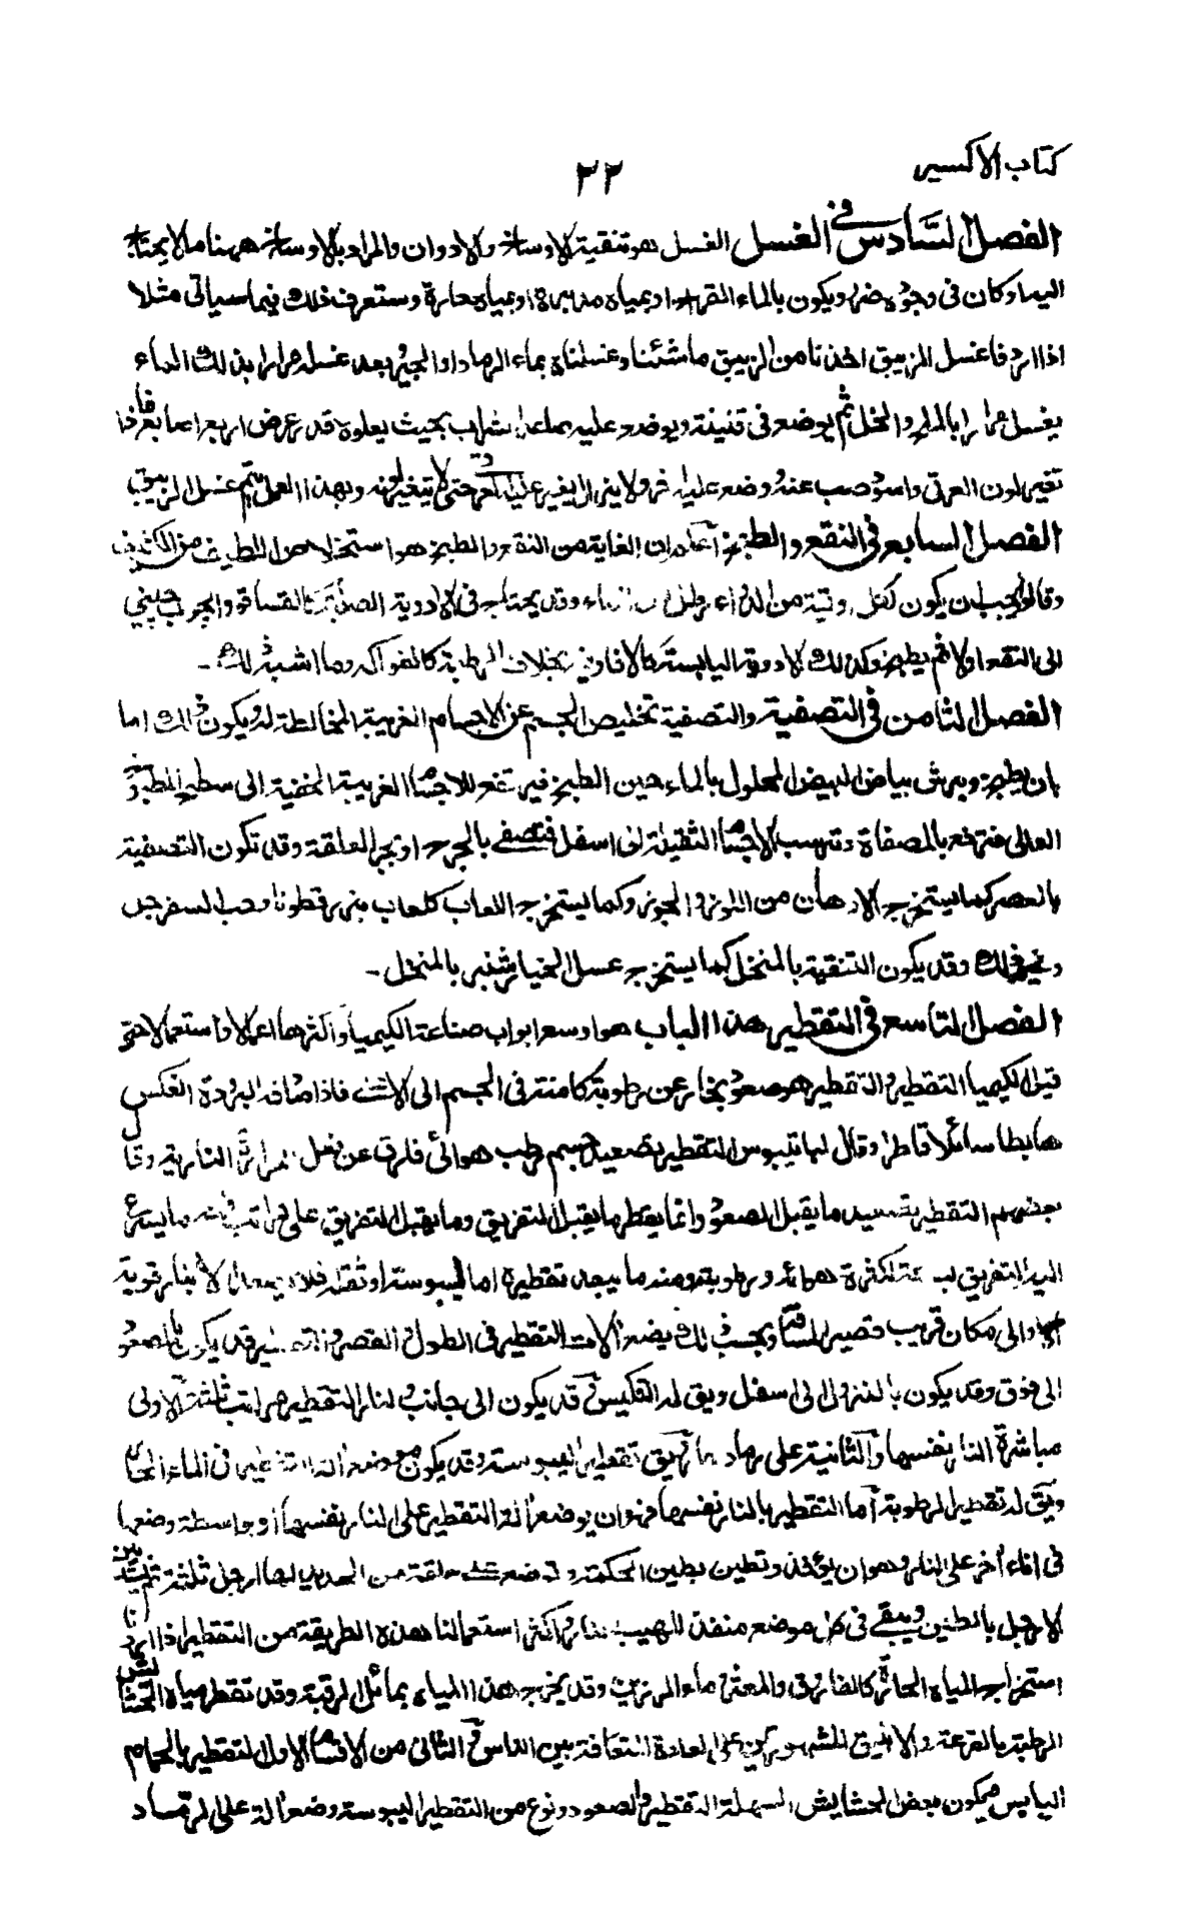 كتاب الاكسير
٣٢
الفصل السادس في الغسل الغسل هو تنقية الاوساخ والادران والمراد بالاوساخ ههنا ما لا يحتاج
اليها وكان في وجوده ضرر ويكون بالماء القراح او بمياه مدبرة او بمياه حارة وستعرف ذلك فيما سياتي مثلا
اذا اردنا غسل الزيبق اخذنا من الزيبق ما شئنا وغسلناه بماء الرماد او الجير بعد غسله مرارا بذلك الماء
يغسل مرارا بالملح والخل ثم يوضع في قنينة ويوضع عليه بحيث يعلوه قدر عرض اربع اصابع فاذا
تغير لون العرق واسود صب عنه وضع عليه ولا يزال يغير عليه العرق حتى لا يتغير لونه وبهذا العمل يتم غسل الزيبق
الفصل السابع في النقع والطبخ اعلم ان الغاية من النقع والطبخ هو استخلاص اللطيف من الكثيف
وقالوا يجب ان يكون لكل وقية من الدواء رطل من الماء وقد يحتاج في الادوية الصلبة كالقساق والجوب چيني
الى النقع اولا ثم يطبخ وكذلك الادوية اليابسة كالافاويه بخلاف الرطبة كالفواكه وما اشبه ذلك ـ
الفصل الثامن في التصفية والتصفية تخليص الجسم عن الاجسام الغريبة المخالطة له ويكون ذلك اما
بان يطبخ ويرش بياض البيض المحلول بالماء حين الطبخ فيرتفع للاجسام الغريبة الخفية الى سطح المطبوخ
العالى فترفع بالمصفاة وترسب الاجسام الثقيلة الى اسفل فتصفى بالجر او بجر العلقة وقد تكون التصفية
بالعصر كما يستخرج الادهان من اللوز والجوز وكما يستخرج اللعاب كلعاب بزر قطونا وحب السفرجل
وغير ذلك وقد يكون التنقية بالمنخل كما يستخرج عسل الخيار شنبر بالمنخل ـ
الفصل التاسع في التقطير هذا الباب هو اوسع ابواب صناعة الكيميا واكثرها اعمالا واستعمالا حتى
قيل الكيميا التقطير والتقطير هو صعود بخار عن رطوبة كامنة في الجسم الى الانبيق فاذا صادف البرودة انعكس
هابطا سائلا قاطرا وقال ليباتيبوس التقطير تصعيد جسم رطب هوائي فارق عن ثفل الحرارة النارية وقال
بعضهم التقطير تصعيد ما يقبل الصعود وانما يقطر ما يقبل التفريق وما يقبل التفريق على مراتب منه ما يسرع
اليه التفريق لكثرة هوائه ورطوبته ومنه ما يبعد تقطيره اما ليبوسته او ثقله فلا يصعد الا بنار قوية
والى مكان قريب قصير المسافة وبحسب ذلك يضع الات التقطير في الطول والقصر والتقطير قد يكون بالصعود
الى فوق وقد يكون بالنزول الى اسفل ويق له التكليس وقد يكون الى جانب ولنار التقطير مراتب ثلثة الاولى
مباشرة النار بنفسها والثانية على رماد ويق تقطير اليبوسة وقد يكون مع وضع الة التقطير في الماء الحار
ويق له تقطير الرطوبة اما التقطير بالنار نفسها فهو ان يوضع الة التقطير على النار بنفسها او بواسطة وضعها
في اناء اخر على النار وهو ان يؤخذ وتطين بطين الحكمة وتوضع على حلقة من الحديد لها ارجل ثلثة ثم يشد بين
الارجل بالطين ويبقى في كل موضع منفذ للهيب النار واكثر استعمالنا هذه الطريقة من التقطير اذا اردنا
استخراج المياه الحارة كالفاروق والمعشر وماء الزرنيخ وقد يخرج هذا المياه بمائل الرقبة وقد تقطر مياه الحشائش
الرطبة بالقرعة والانبيق المشهورين على العادة المتعارفة بين الناس والثاني من الاقسام الاول التقطير بالحمام
اليابس فيكون بعض الحشايش السهلة التقطير والصعود ونوع من التقطير اليبوسة وضع الة على الرماد